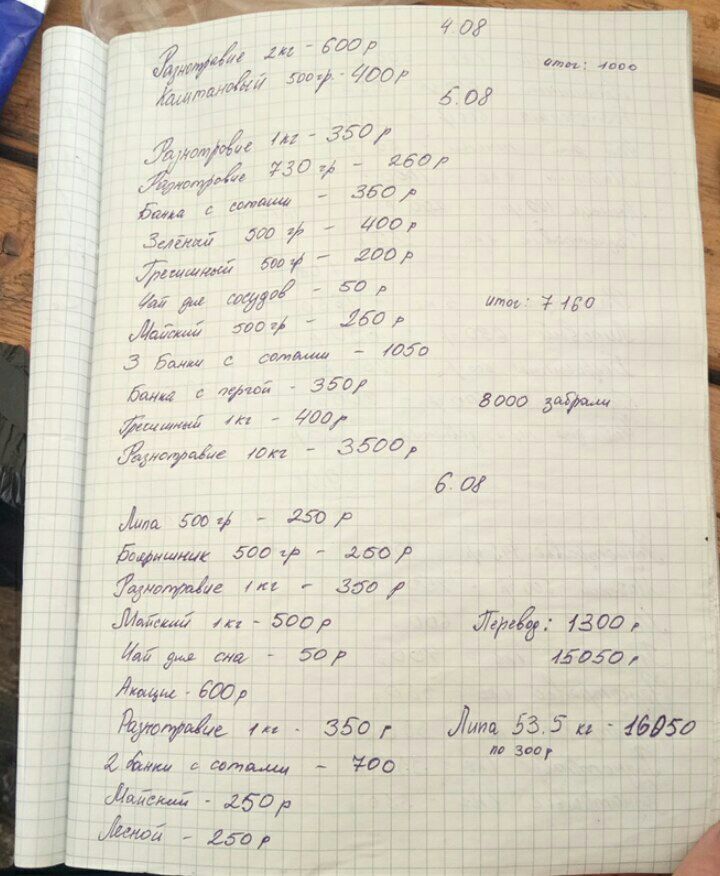 4.08
Разнотравие 2кг - 600р
Каштановый 500гр - 400р
итог: 1000
5.08
Разнотровие 1кг - 350р
Разнотровие 730гр - 260р
Банка с сотами - 350р
Зелёный 500гр - 400р
Гречишный 500гр - 200р
Чай для сосудов - 50р
Майский 500гр - 250р
итог: 7160
3 Банки с сотами - 1050
Банка с пергой - 350р
8000 забрали
Гречишный 1кг - 400р
Разнотравие 10кг - 3500р
6.08
Липа 500гр - 250р
Боярышник 500гр - 250р
Разнотравие 1кг - 350р
Майский 1кг - 500р
Перевод: 1300р
Чай для сна - 50р
15050р
Акация - 600р
Разнотравие 1кг - 350р
Липа 53.5 кг - 16050
по 300р
2 банки с сотами - 700
Майский - 250р
Лесной - 250р